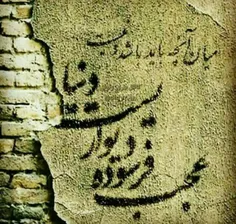 میان آنچه باید باشد و نیست
دنیا
دیوار
فرسوده
عجب